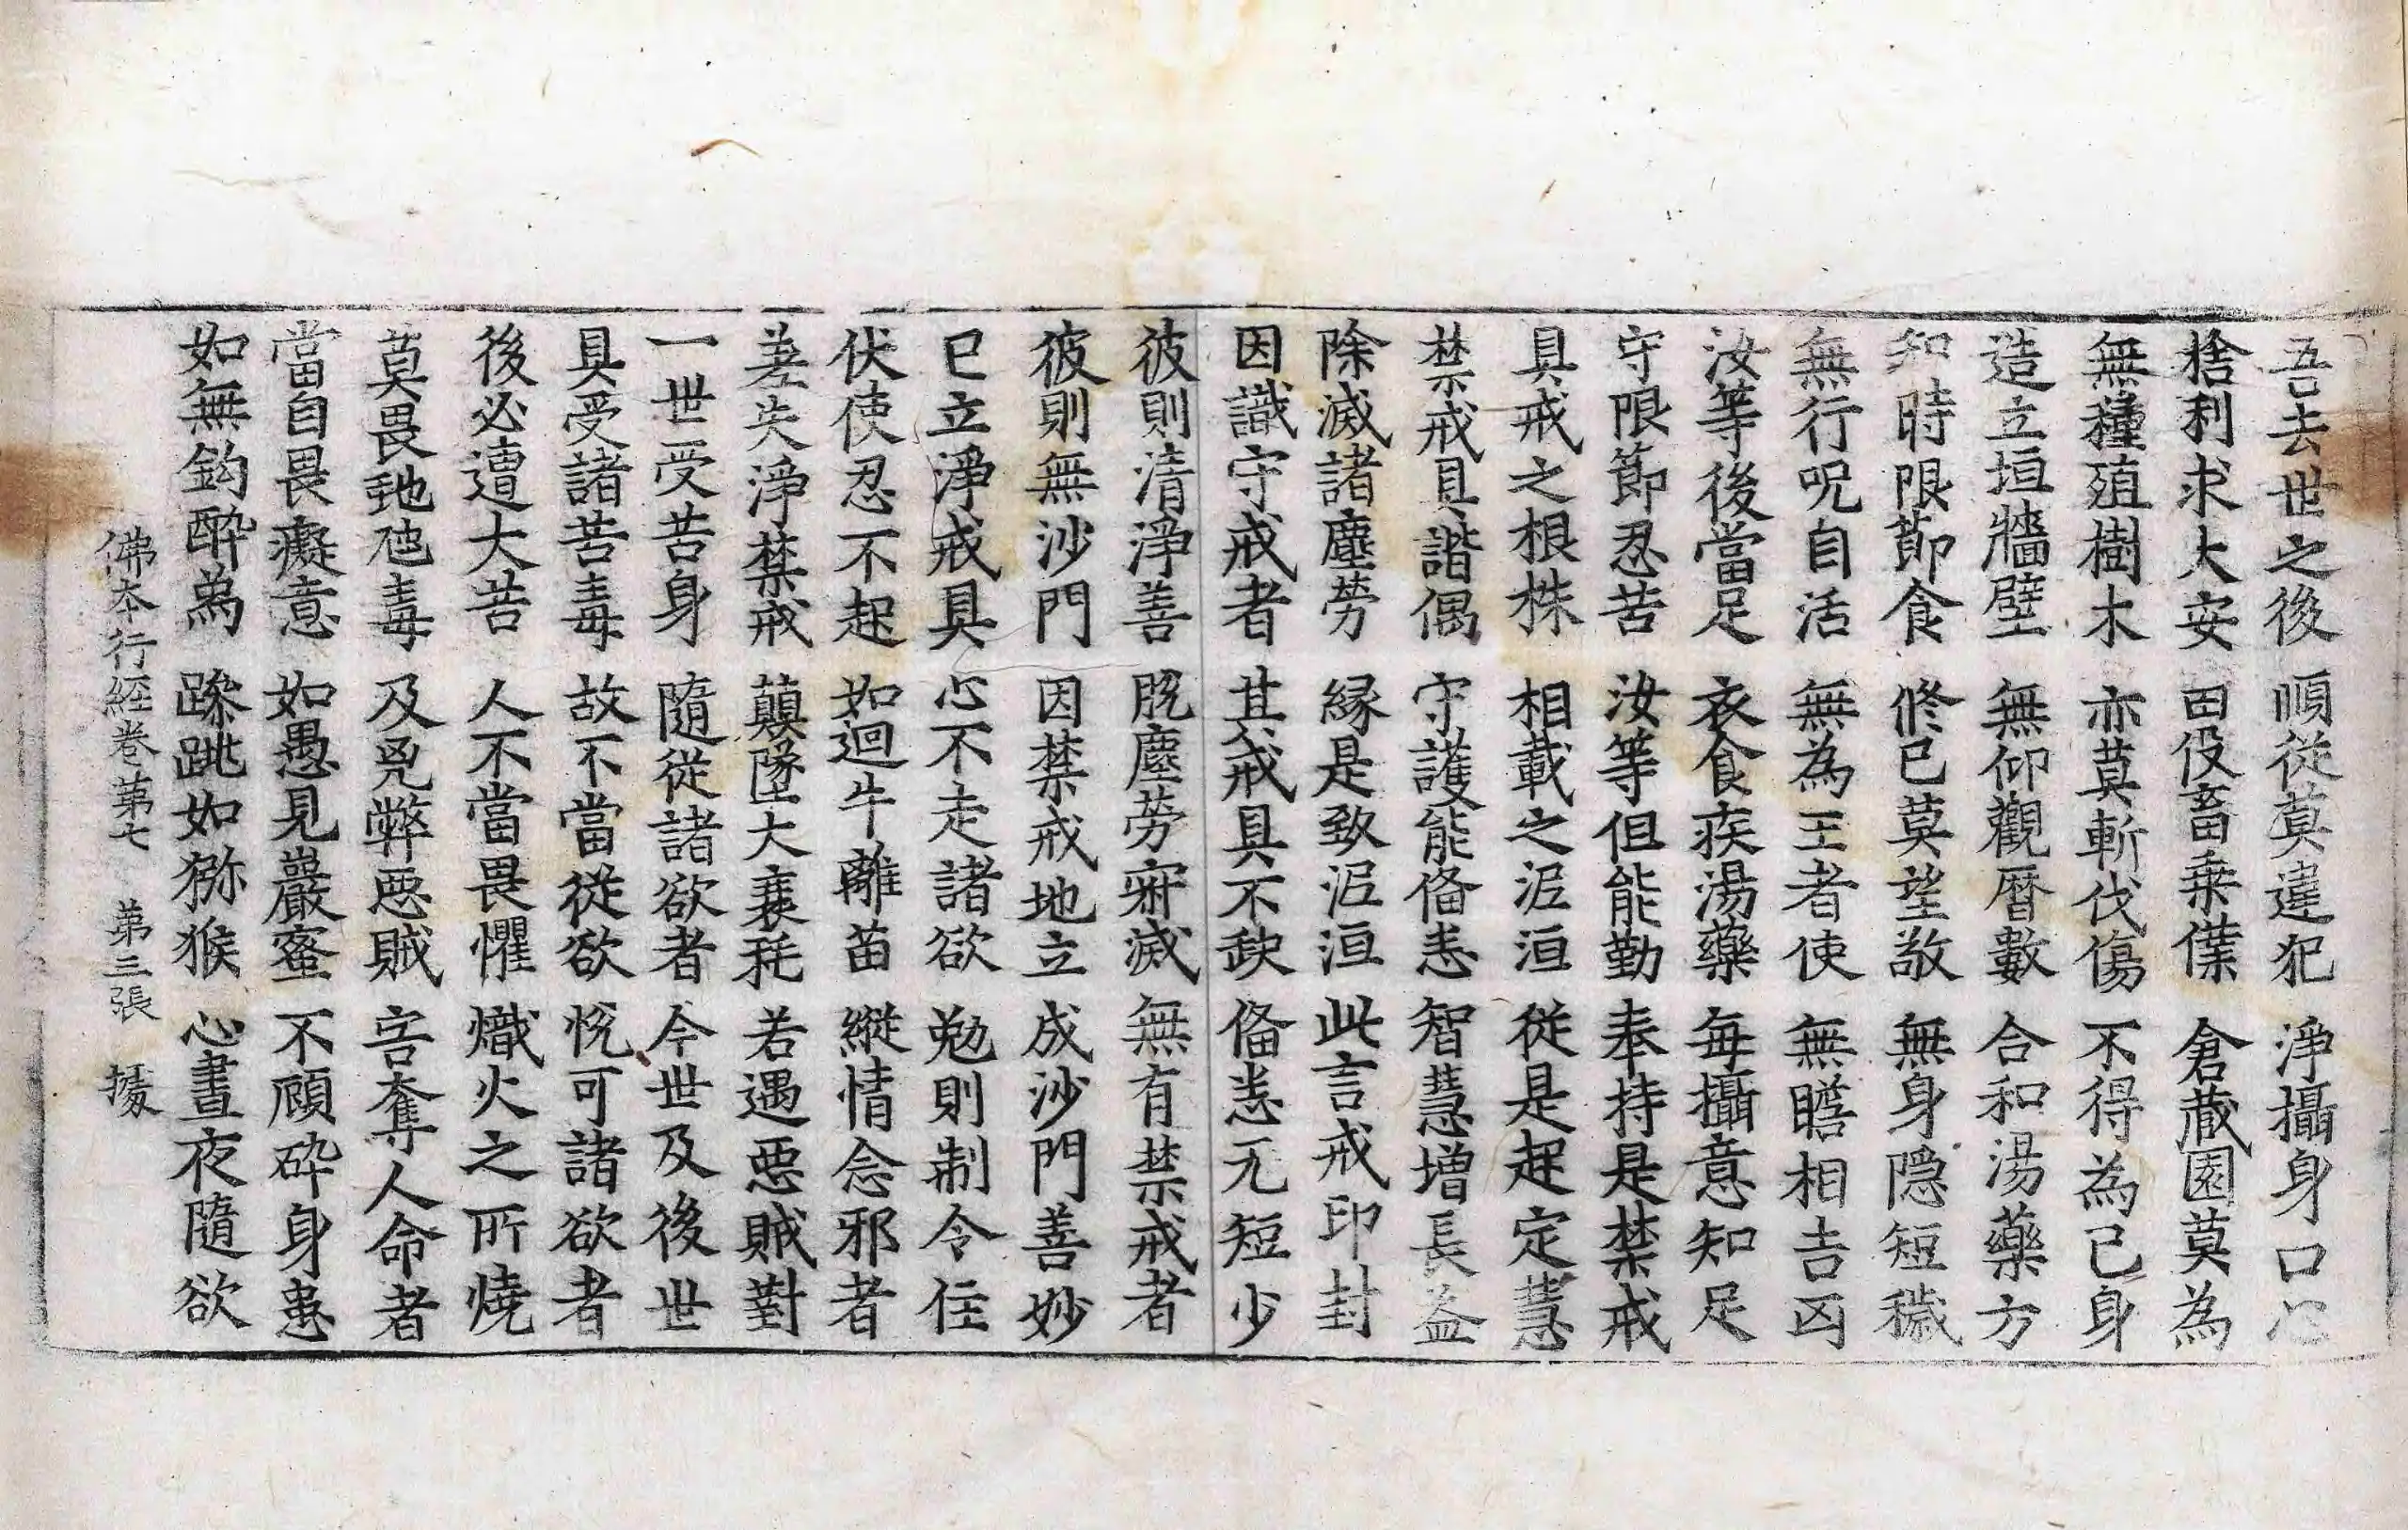 吾去世之後　順從莫違犯　淨攝身口心
捨利求大安　田伇畜乗㒒　倉蔵園莫為
無種殖樹木　亦莫斬伐傷　不得為己身
造立垣牆壁　無仰觀曆數　合和湯藥方
知時限節食　修已莫望敬　無身隠短穢
無行呪自活　無為王者使　無瞻相吉凶
汝等後當足　衣食疾湯藥　每攝意知足
守限節忍苦　汝等但能勤　奉持是禁戒
具戒之根株　相載之泥洹　從是起定慧
禁戒具諧偶　守護能俻悉　智慧增長益
除滅諸塵勞　緣是致泥洹　此言戒印封
因識守戒者　其戒具不缺　俻悉无短少
彼則清淨善　脫塵勞寂滅　無有禁戒者
彼則無沙門　因禁戒地立　成沙門善妙
已立淨戒具　心不走諸欲　勉則制令住
伏使忍不起　如迴牛離苗　縱情念邪者
差失淨禁戒　顛墜大衰耗　若遇惡賊對
一世受苦身　隨從諸欲者　今世及後世
具受諸苦毒　故不當從欲　恱可諸欲者
後必遭大苦　人不當畏懼　熾火之所燒
莫畏虵虺毒　及兇弊惡賊　害奪人命者
當自畏癡意　如愚見巖蜜　不顧碎身患
如無鈎醉為　躁跳如猕猴　心晝夜隨欲
佛本行経卷第七　第三張　援